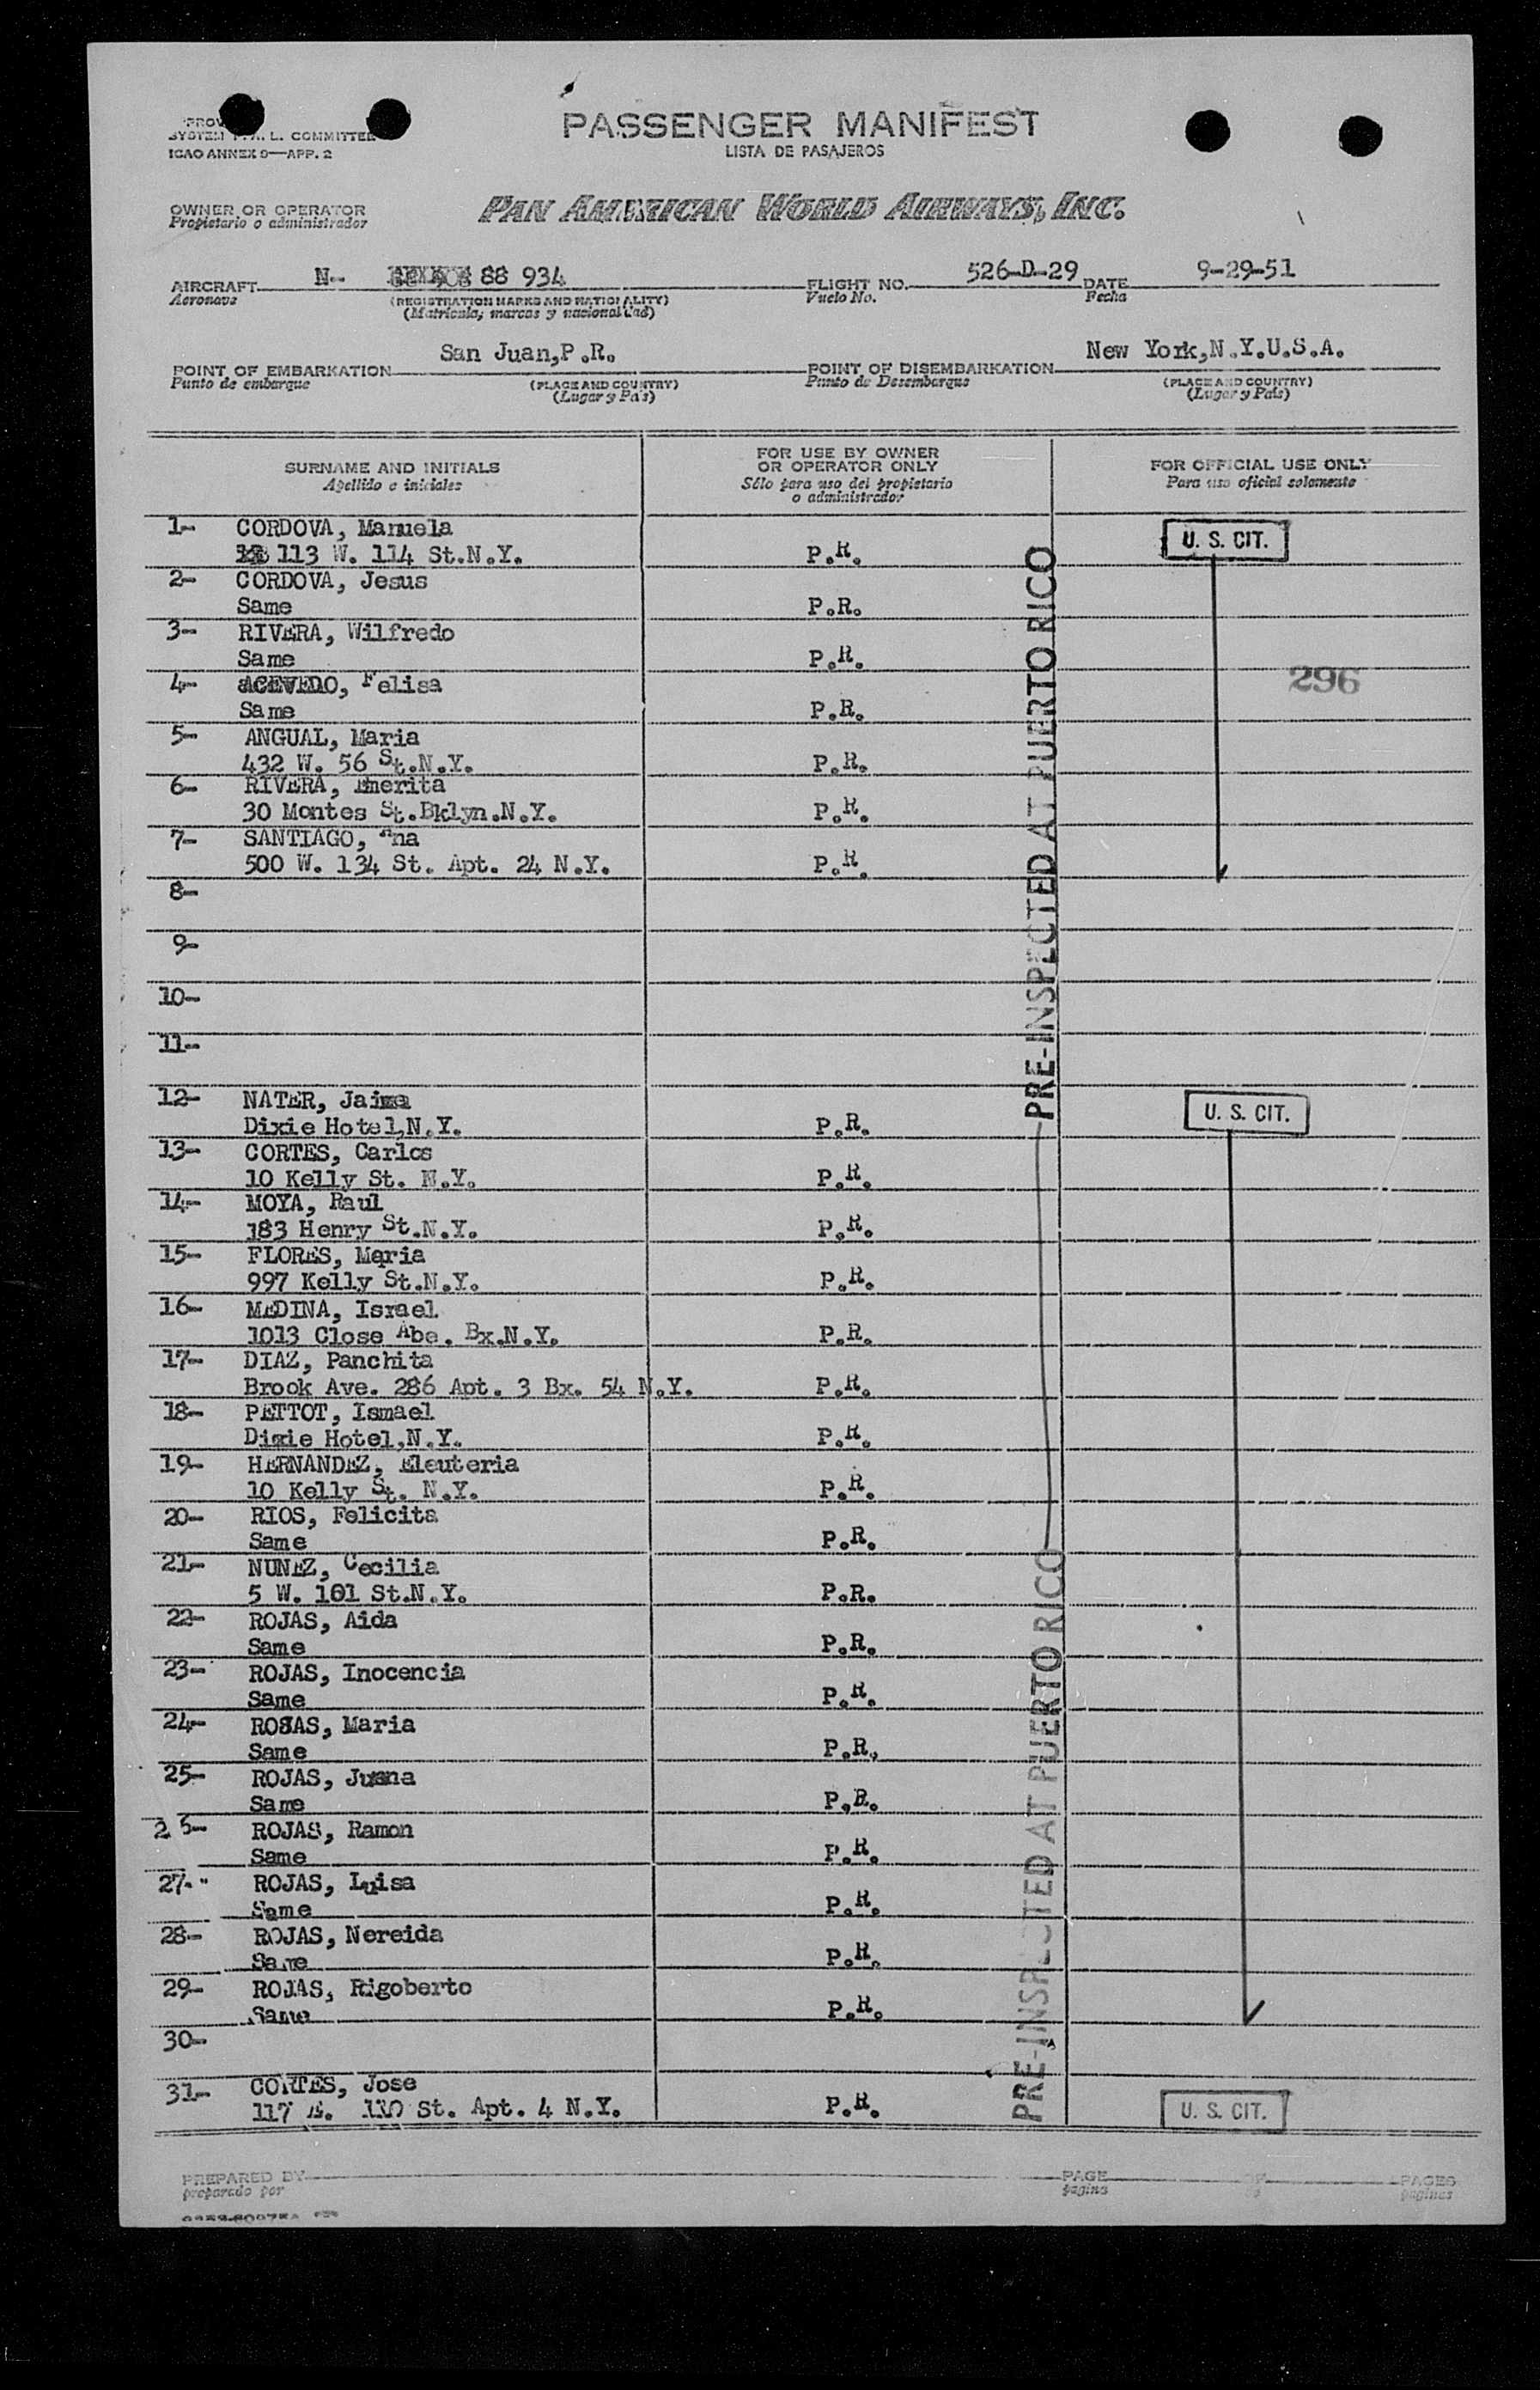 SYSTEM F.A.L. COMMITTEE
ICAO ANNEX 9—APP. 2
PASSENGER MANIFEST
LISTA DE PASAJEROS
OWNER OR OPERATOR
Propietario o administrador
PAN AMERICAN WORLD AIRWAYS, INC.
AIRCRAFT N-- 88 934 FLIGHT NO. 526-D-29 DATE 9-29-51
Aeronave (REGISTRATION MARKS AND NATIONALITY) Vuelo No. Fecha
(Matricula, marcas y nacionalidad)
POINT OF EMBARKATION San Juan,P.R. POINT OF DISEMBARKATION New York,N.Y.U.S.A.
Punto de embarque (PLACE AND COUNTRY) Punto de Desembarque (PLACE AND COUNTRY)
(Lugar y País) (Lugar y País)
SURNAME AND INITIALS FOR USE BY OWNER OR OPERATOR ONLY FOR OFFICIAL USE ONLY
Apellido e iniciales Sólo para uso del propietario o administrador Para uso oficial solamente
1- CORDOVA, Manuela
113 W. 114 St.N.Y. P.R. U. S. CIT.
2- CORDOVA, Jesus
Same P.R.
3- RIVERA, Wilfredo
Same P.R.
296
4- ACEVEDO, Felisa
Same P.R.
5- ANGUAL, Maria
432 W. 56 St.N.Y. P.R.
6- RIVERA, Emerita
30 Montes St.Bklyn.N.Y. P.R.
7- SANTIAGO, Ana
500 W. 134 St. Apt. 24 N.Y. P.R.
8-
9-
10-
11-
PRE-INSPECTED AT PUERTO RICO
12- NATER, Jaime
Dixie Hotel,N.Y. P.R. U. S. CIT.
13- CORTES, Carlos
10 Kelly St. N.Y. P.R.
14- MOYA, Raul
183 Henry St.N.Y. P.R.
15- FLORES, Maria
997 Kelly St.N.Y. P.R.
16- MEDINA, Israel
1013 Close Abe. Bx.N.Y. P.R.
17- DIAZ, Panchita
Brook Ave. 286 Apt. 3 Bx. 54 N.Y. P.R.
18- PETTOT, Ismael
Dixie Hotel,N.Y. P.R.
19- HERNANDEZ, Eleuteria
10 Kelly St. N.Y. P.R.
20- RIOS, Felicita
Same P.R.
21- NUNEZ, Cecilia
5 W. 101 St.N.Y. P.R.
22- ROJAS, Aida
Same P.R.
23- ROJAS, Inocencia
Same P.R.
24- ROJAS, Maria
Same P.R.
25- ROJAS, Juana
Same P.R.
26- ROJAS, Ramon
Same P.R.
27- ROJAS, Luisa
Same P.R.
28- ROJAS, Nereida
Same P.R.
29- ROJAS, Rigoberto
Same P.R.
30-
31- CORTES, Jose
117 E. 110 St. Apt. 4 N.Y. P.R. U. S. CIT.
PRE-INSPECTED AT PUERTO RICO
PREPARED BY PAGE OF PAGES
preparado por pagina paginas